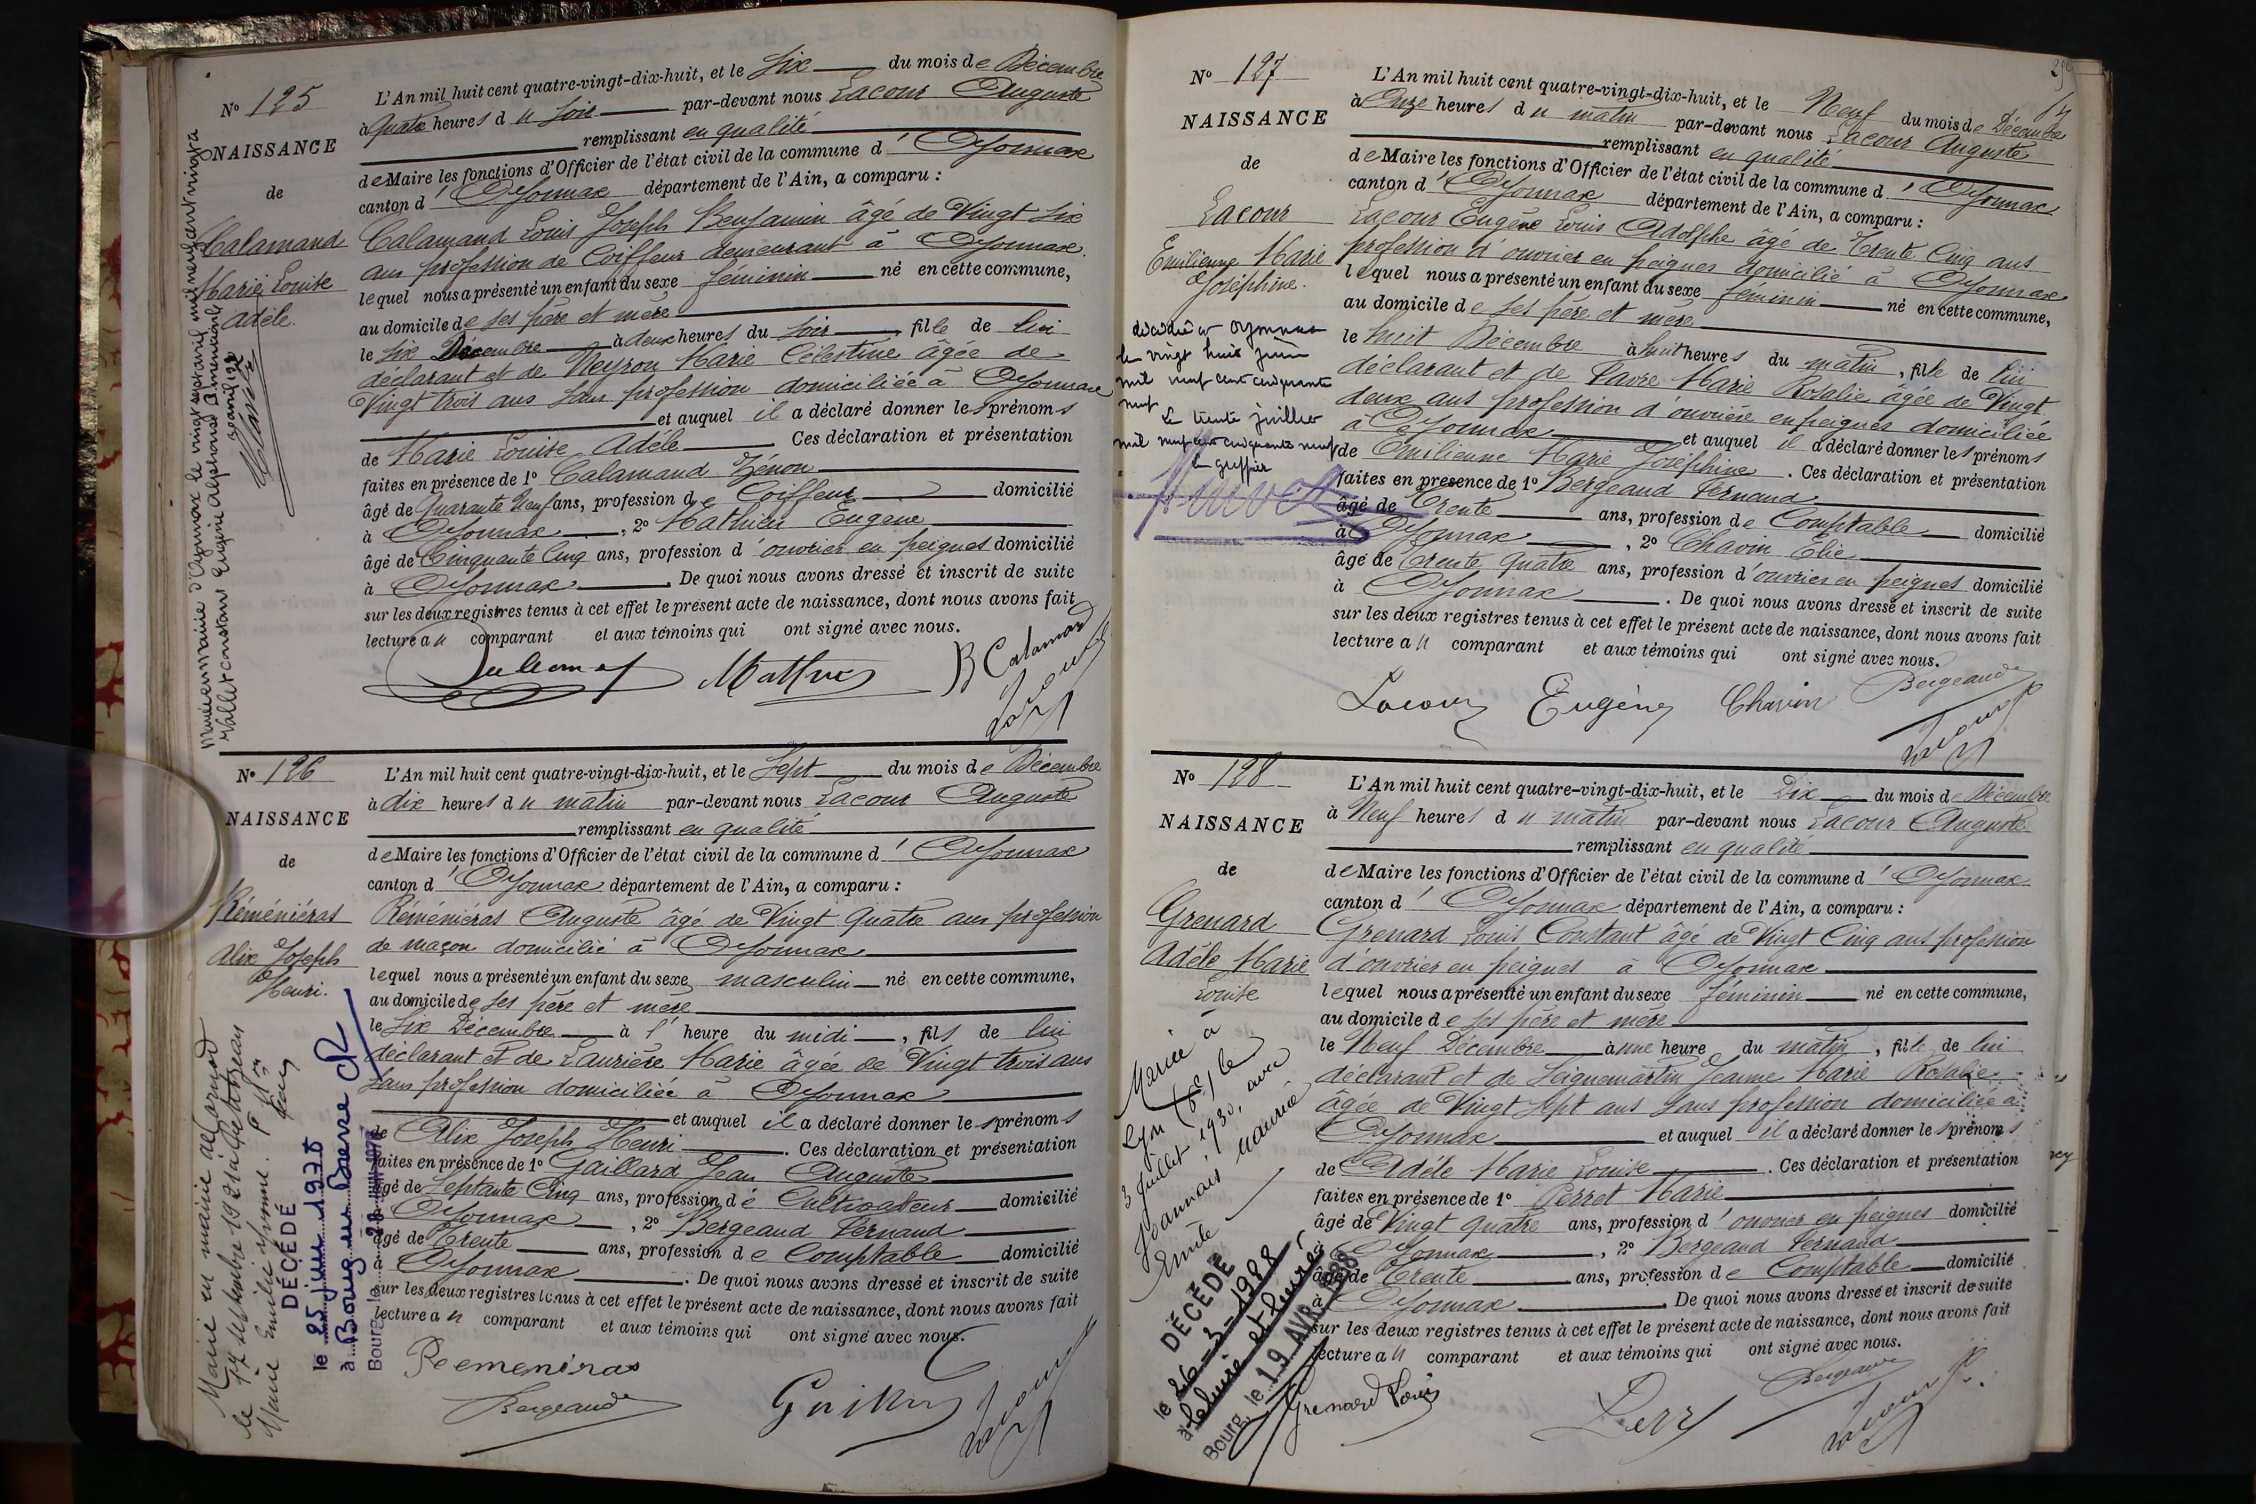 N° 125
NAISSANCE
de
Calamand
Marie Louise
Adèle.
Mariée en mairie d'Oyonnax le vingt sept avril mil neuf cent vingt
Mallet Constant Eugène Alphonse
L'An mil huit cent quatre-vingt-dix-huit, et le Six du mois de Décembre
à Quatre heures du soir par-devant nous Lacour Auguste
remplissant en qualité
de Maire les fonctions d'Officier de l'état civil de la commune d'Oyonnax
canton d'Oyonnax département de l'Ain, a comparu :
Calamand Louis Joseph Benjamin âgé de Vingt six
ans profession de Coiffeur demeurant à Oyonnax
lequel nous a présenté un enfant du sexe féminin né en cette commune,
au domicile de ses père et mère
le Six Décembre à deux heures du soir, fille de lui
déclarant et de Neyron Marie Célestine âgée de
Vingt trois ans sans profession domiciliée à Oyonnax
et auquel il a déclaré donner les prénoms
de Marie Louise Adèle. Ces déclaration et présentation
faites en présence de 1° Calamand Zénon
âgé de Quarante Neuf ans, profession de Coiffeur domicilié
à Oyonnax, 2° Mathieu Eugène
âgé de Cinquante Cinq ans, profession d'ouvrier en peignes domicilié
à Oyonnax. De quoi nous avons dressé et inscrit de suite
sur les deux registres tenus à cet effet le présent acte de naissance, dont nous avons fait
lecture au comparant et aux témoins qui ont signé avec nous.
Mathieu B Calamand
Lacour
N° 126
NAISSANCE
de
Réméniéras
Alix Joseph
Henri.
Marié en mairie de
le 17 septembre 1921
Marie Emilie Yvonne.
DÉCÉDÉ
le 25 juin 1970
à Bourg en Bresse
Bourg, le
L'An mil huit cent quatre-vingt-dix-huit, et le Sept du mois de Décembre
à dix heures du matin par-devant nous Lacour Auguste
remplissant en qualité
de Maire les fonctions d'Officier de l'état civil de la commune d'Oyonnax
canton d'Oyonnax département de l'Ain, a comparu :
Réméniéras Auguste âgé de Vingt Quatre ans profession
de maçon domicilié à Oyonnax
lequel nous a présenté un enfant du sexe masculin né en cette commune,
au domicile de ses père et mère
le Six Décembre à l'heure du midi, fils de lui
déclarant et de Laurière Marie âgée de Vingt trois ans
sans profession domiciliée à Oyonnax
et auquel il a déclaré donner les prénoms
de Alix Joseph Henri. Ces déclaration et présentation
faites en présence de 1° Gaillard Jean Auguste
âgé de Septante Cinq ans, profession de Cultivateur domicilié
à Oyonnax, 2° Bergeaud Fernand
âgé de Trente ans, profession de Comptable domicilié
à Oyonnax. De quoi nous avons dressé et inscrit de suite
sur les deux registres tenus à cet effet le présent acte de naissance, dont nous avons fait
lecture au comparant et aux témoins qui ont signé avec nous.
Reemeniras
Bergeaud
Lacour
N° 127
NAISSANCE
de
Lacour
Emilienne Marie
Joséphine.
décédée à Oyonnax
le vingt huit juin
mil neuf cent cinquante
neuf
Le trente juillet
mil neuf cent cinquante neuf
Le greffier
L'An mil huit cent quatre-vingt-dix-huit, et le Neuf du mois de Décembre
à Onze heures du matin par-devant nous Lacour Auguste
remplissant en qualité
de Maire les fonctions d'Officier de l'état civil de la commune d'Oyonnax
canton d'Oyonnax département de l'Ain, a comparu :
Lacour Eugène Louis Adolphe âgé de Trente Cinq ans
profession d'ouvrier en peignes domicilié à Oyonnax
lequel nous a présenté un enfant du sexe féminin né en cette commune,
au domicile de ses père et mère
le huit Décembre à huit heures du matin, fille de lui
déclarant et de Favre Marie Rosalie âgée de Vingt
deux ans profession d'ouvrière en peignes domiciliée
à Oyonnax et auquel il a déclaré donner les prénoms
de Emilienne Marie Joséphine. Ces déclaration et présentation
faites en présence de 1° Bergeaud Fernand
âgé de Trente ans, profession de Comptable domicilié
à Oyonnax, 2° Chavin Elie
âgé de Trente Quatre ans, profession d'ouvrier en peignes domicilié
à Oyonnax. De quoi nous avons dressé et inscrit de suite
sur les deux registres tenus à cet effet le présent acte de naissance, dont nous avons fait
lecture au comparant et aux témoins qui ont signé avec nous.
Lacour Eugène Chavin Bergeaud
Lacour
N° 128
NAISSANCE
de
Grenard
Adèle Marie
Louise
Mariée à
Lyon (6e) le
3 juillet 1930, avec
Jeannais Maurice
Emile
DÉCÉDÉ
le 26-3-1988
à
Bourg, le 19 AVR. 1988
L'An mil huit cent quatre-vingt-dix-huit, et le Dix du mois de Décembre
à Neuf heures du matin par-devant nous Lacour Auguste
remplissant en qualité
de Maire les fonctions d'Officier de l'état civil de la commune d'Oyonnax
canton d'Oyonnax département de l'Ain, a comparu :
Grenard Louis Constant âgé de Vingt Cinq ans profession
d'ouvrier en peignes à Oyonnax
lequel nous a présenté un enfant du sexe féminin né en cette commune,
au domicile de ses père et mère
le Neuf Décembre à une heure du matin, fille de lui
déclarant et de Seignemartin Jeanne Marie Rosalie
âgée de Vingt Sept ans sans profession domiciliée à
Oyonnax et auquel il a déclaré donner les prénoms
de Adèle Marie Louise. Ces déclaration et présentation
faites en présence de 1° Perret Marie
âgé de Vingt quatre ans, profession d'ouvrier en peignes domicilié
à Oyonnax, 2° Bergeaud Fernand
âgé de Trente ans, profession de Comptable domicilié
à Oyonnax. De quoi nous avons dressé et inscrit de suite
sur les deux registres tenus à cet effet le présent acte de naissance, dont nous avons fait
lecture au comparant et aux témoins qui ont signé avec nous.
Grenard Louis Bergeaud
Lacour